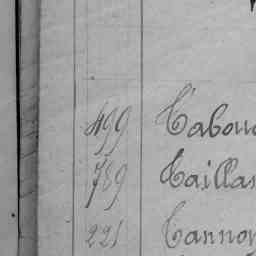 499 Tabou
789 Tailla
221 Tannoy